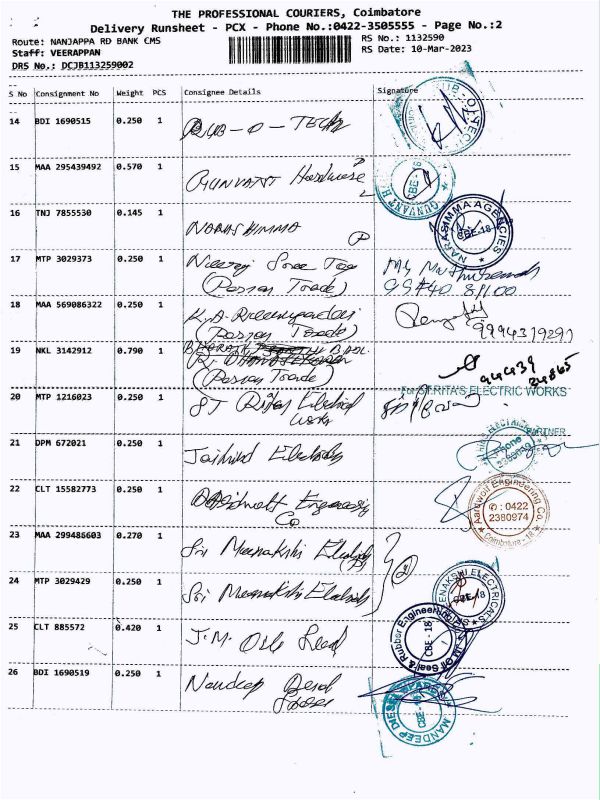 THE PROFESSIONAL COURIERS, Coimbatore
Delivery Runsheet - PCX - Phone No.:0422-3505555 - Page No.:2
Route: NANJAPPA RD BANK CMS
RS No.: 1132590
Staff: VEERAPPAN
RS Date: 10-Mar-2023
DRS No.: DCJB113259002
S No Consignment No Weight PCS Consignee Details Signature
14 BDI 1690515 0.250 1 RUB-O-TECH
15 MAA 295439492 0.570 1 GUNVANT Hardware
CBE-18
GUNVANT H
16 TNJ 7855530 0.145 1 NARASHIMMA
NARASIMMA AGENCIES
CBE-18
17 MTP 3029373 0.250 1 Neeraj Sree
99940 81100
18 MAA 569086322 0.250 1 K.A.
9994319291
19 NKL 3142912 0.790 1 BHARATH
94439
20 MTP 1216023 0.250 1 ST Ritas Electrical
Works
For ST.RITA'S ELECTRIC WORKS
PARTNER
21 DPM 672021 0.250 1 Jaihind Electricals
Phone
22 CLT 15582773 0.250 1 Engineering
Co
Aardwolf Engineering Co.
✆ : 0422
2380974
Coimbatore - 18
23 MAA 299486603 0.270 1 Sri Meenakshi Electricals
24 MTP 3029429 0.250 1 Sri Meenakshi Electricals
MEENAKSHI ELECTRICALS
CBE-18
25 CLT 885572 0.420 1 J.M. Oil Seal
J.M Oil Seal & Rubber Engineering
CBE - 18
26 BDI 1690519 0.250 1 Mandeep Diesel
Spares
MANDEEP DIESEL SPARES
CBE-18